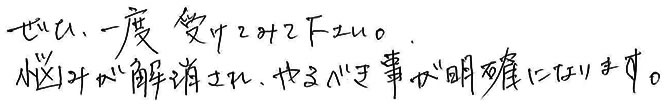 ぜひ、一度 受けてみて下さい。
悩みが解消され、やるべき事が明確になります。